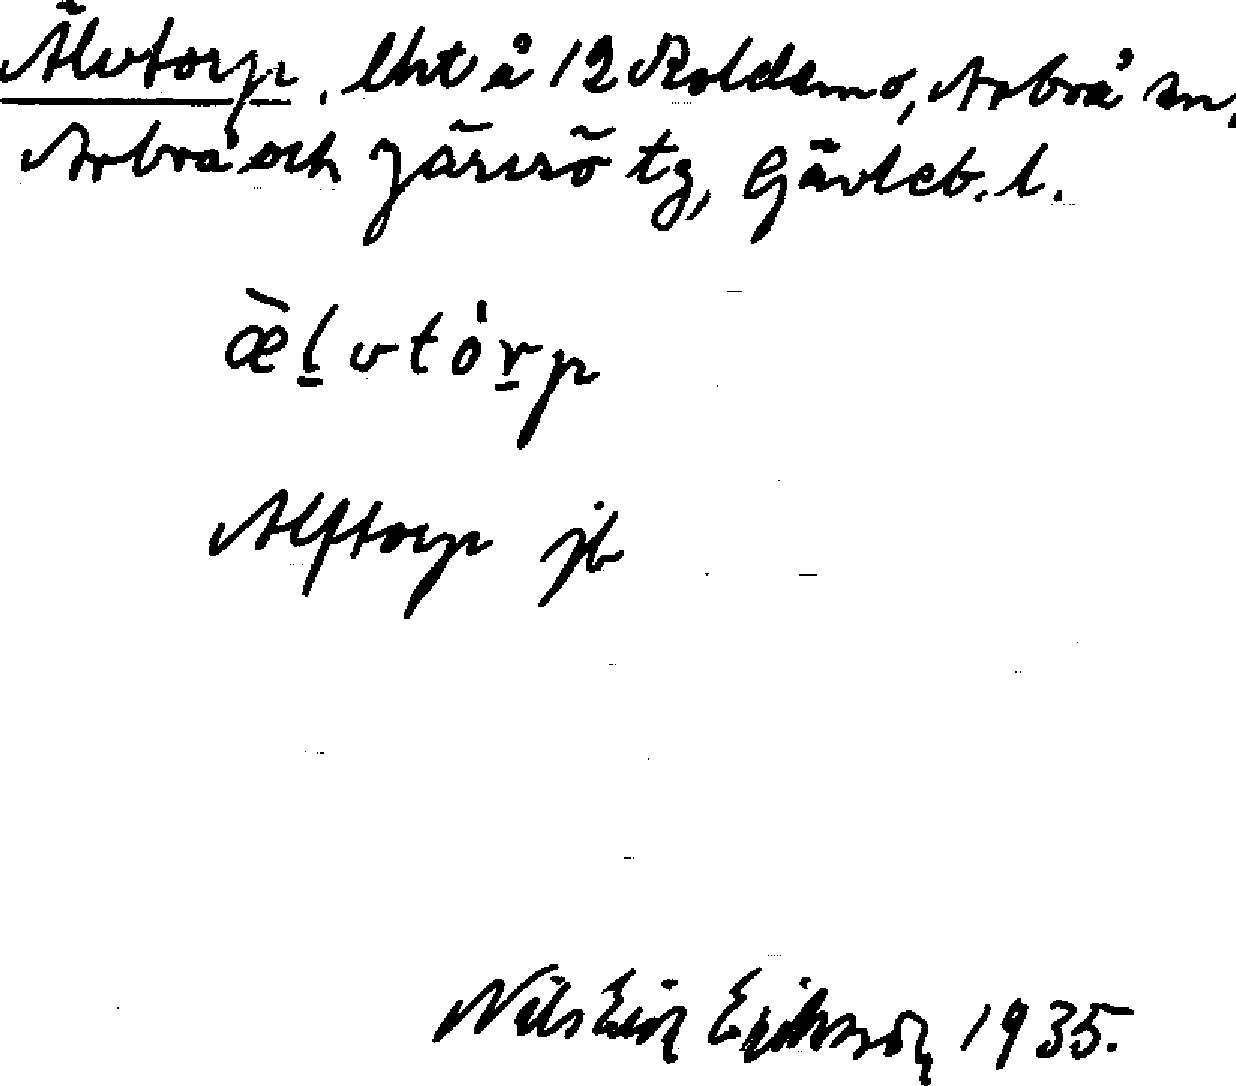 Älvtorp. lht å 12 Koldemo, Arbrå sn,
Arbrå och Järvsö tg, Gävleb. l.
æ̀l̠vtór̠p
Alftorp jb
Nils Eric Eriksson 1935.